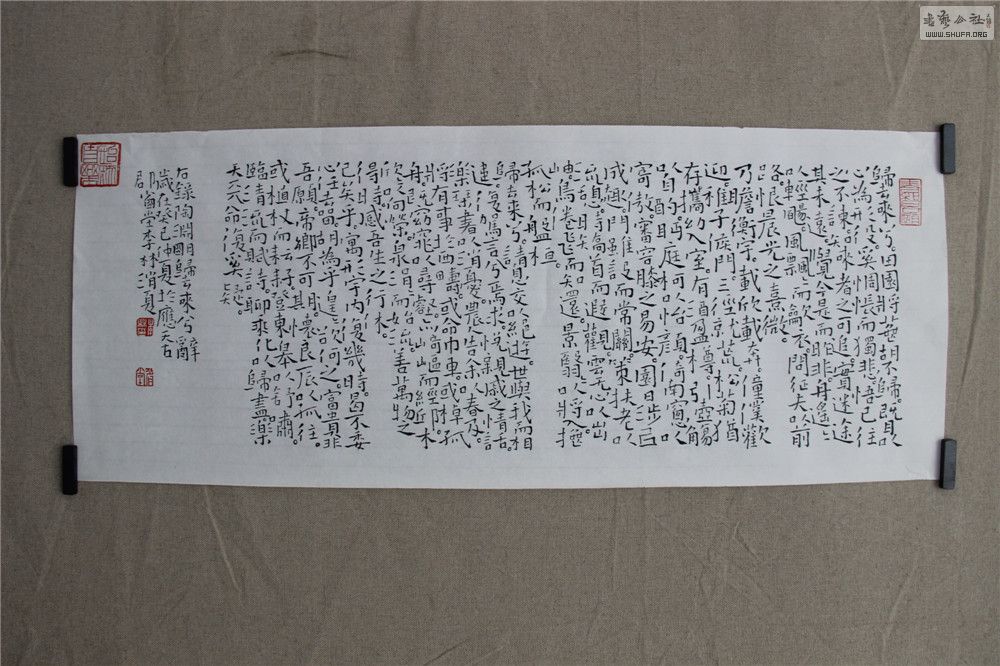 歸去來兮。田園將蕪胡不歸。既自以
心為形役。奚惆悵而獨悲。悟已往
之不諫。知來者之可追。實迷途
其未遠。覺今是而昨非。舟遙遙
以輕颺。風飄飄而吹衣。問征夫以前
路。恨晨光之熹微。
乃瞻衡宇。載欣載奔。僮僕歡
迎。稚子候門。三徑就荒。松菊猶
存。攜幼入室。有酒盈尊。引壺觴
以自酌。眄庭柯以怡顏。倚南窗以
寄傲。審容膝之易安。園日涉以
成趣。門雖設而常關。策扶老以
流憩。時矯首而遐觀。雲無心以出
岫。鳥倦飛而知還。景翳翳以將入。撫
孤松而盤桓。
歸去來兮。請息交以絕遊。世與我而相
違。復駕言兮焉求。悅親戚之情話。
樂琴書以消憂。農人告余以春及。
將有事於西疇。或命巾車。或棹孤
舟。既窈窕以尋壑。亦崎嶇而經丘。木
欣欣以向榮。泉涓涓而始流。善萬物之
得時。感吾生之行休。
已矣乎。寓形宇內復幾時。曷不委
心任去留。胡為乎遑遑欲何之。富貴非
吾願。帝鄉不可期。懷良辰以孤往。
或植杖而耘耔。登東皋以舒嘯。
臨清流而賦詩。聊乘化以歸盡。樂
夫天命復奚疑。
右錄陶淵明歸去來兮辭
歲在癸巳仲夏於應天古
郡 堂李林消夏
書藝公社
WWW.SHUFA.ORG